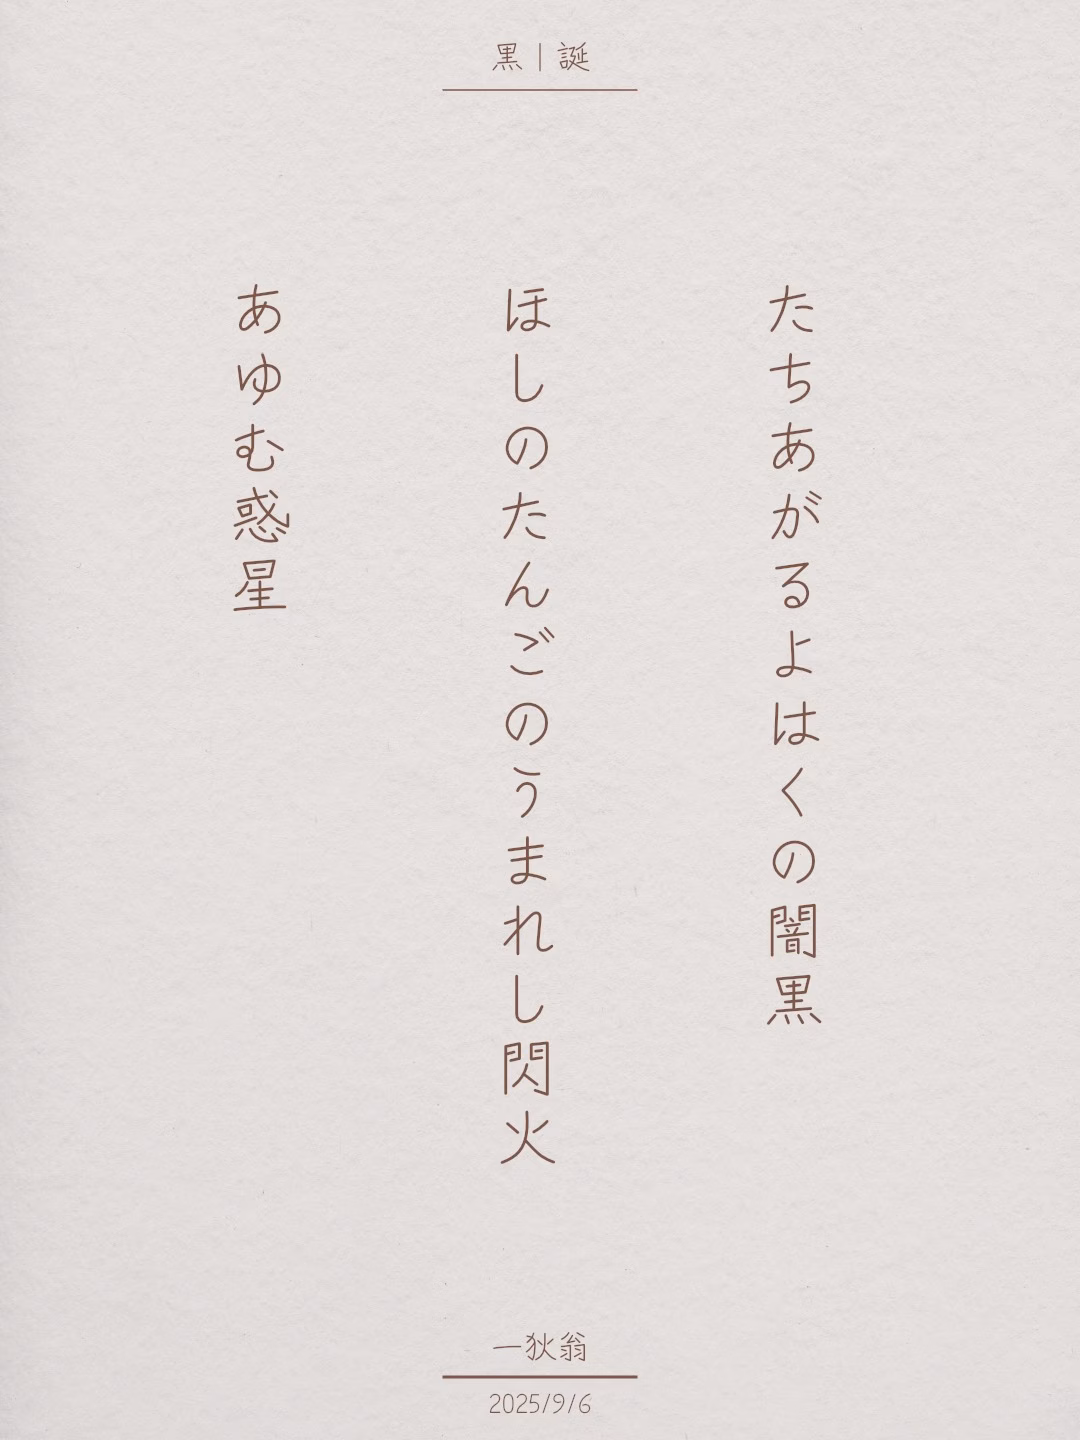 黒｜誕
たちあがるよはくの闇黒
ほしのたんごのうまれし閃火
あゆむ惑星
一狄翁
2025/9/6